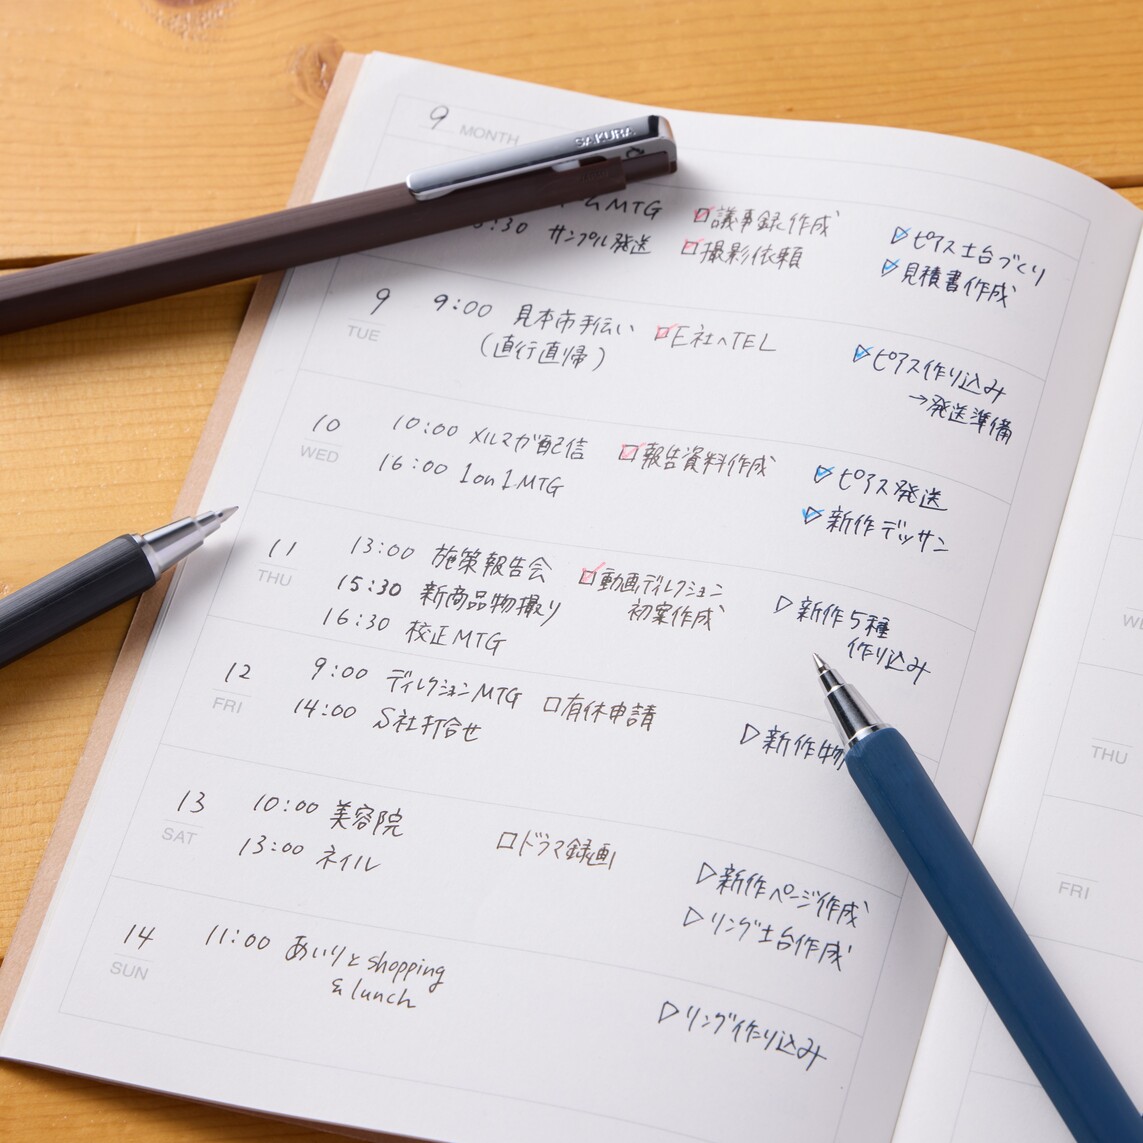 9 MONTH
SAKURA
ムMTG
:30 サンプル発送
議事録作成
撮影依頼
ピアス土台づくり
見積書作成
9
TUE
9:00 見本市手伝い
(直行直帰)
E社へTEL
ピアス作り込み
→発送準備
10
WED
10:00 メルマガ配信
16:00 1on1MTG
報告資料作成
ピアス発送
新作デッサン
11
THU
13:00 施策報告会
15:30 新商品物撮り
16:30 校正MTG
動画ディレクション
初案作成
新作5種
作り込み
12
FRI
9:00 ディレクションMTG
14:00 S社打合せ
有休申請
新作物
13
SAT
10:00 美容院
13:00 ネイル
ドラマ録画
新作ページ作成
リング土台作成
14
SUN
11:00 あいりとshopping
& lunch
リング作り込み
THU
FRI